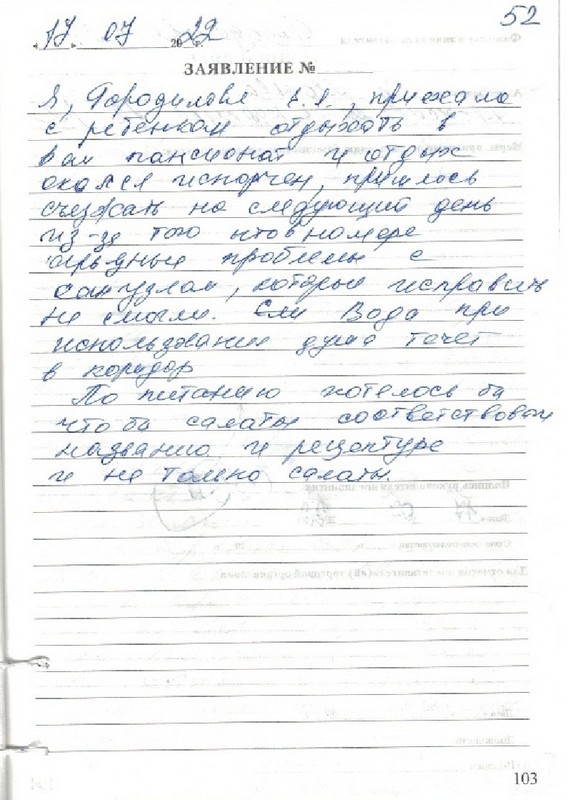 52
"17" 07 2022 г.
ЗАЯВЛЕНИЕ №
Я, Городилова А.А., приехала
с ребенком отдыхать в
Вам пансионат и отдых
оказался испорчен, пришлось
съезжать на следующий день
из-за того что в номере
серьёзные проблемы с
санузлом, которые исправить
не смогли. Вода при
использовании душа течет
в коридор
По питанию хотелось бы
что бы салаты соответствовали
названию и рецептуре
и не только салаты.
103